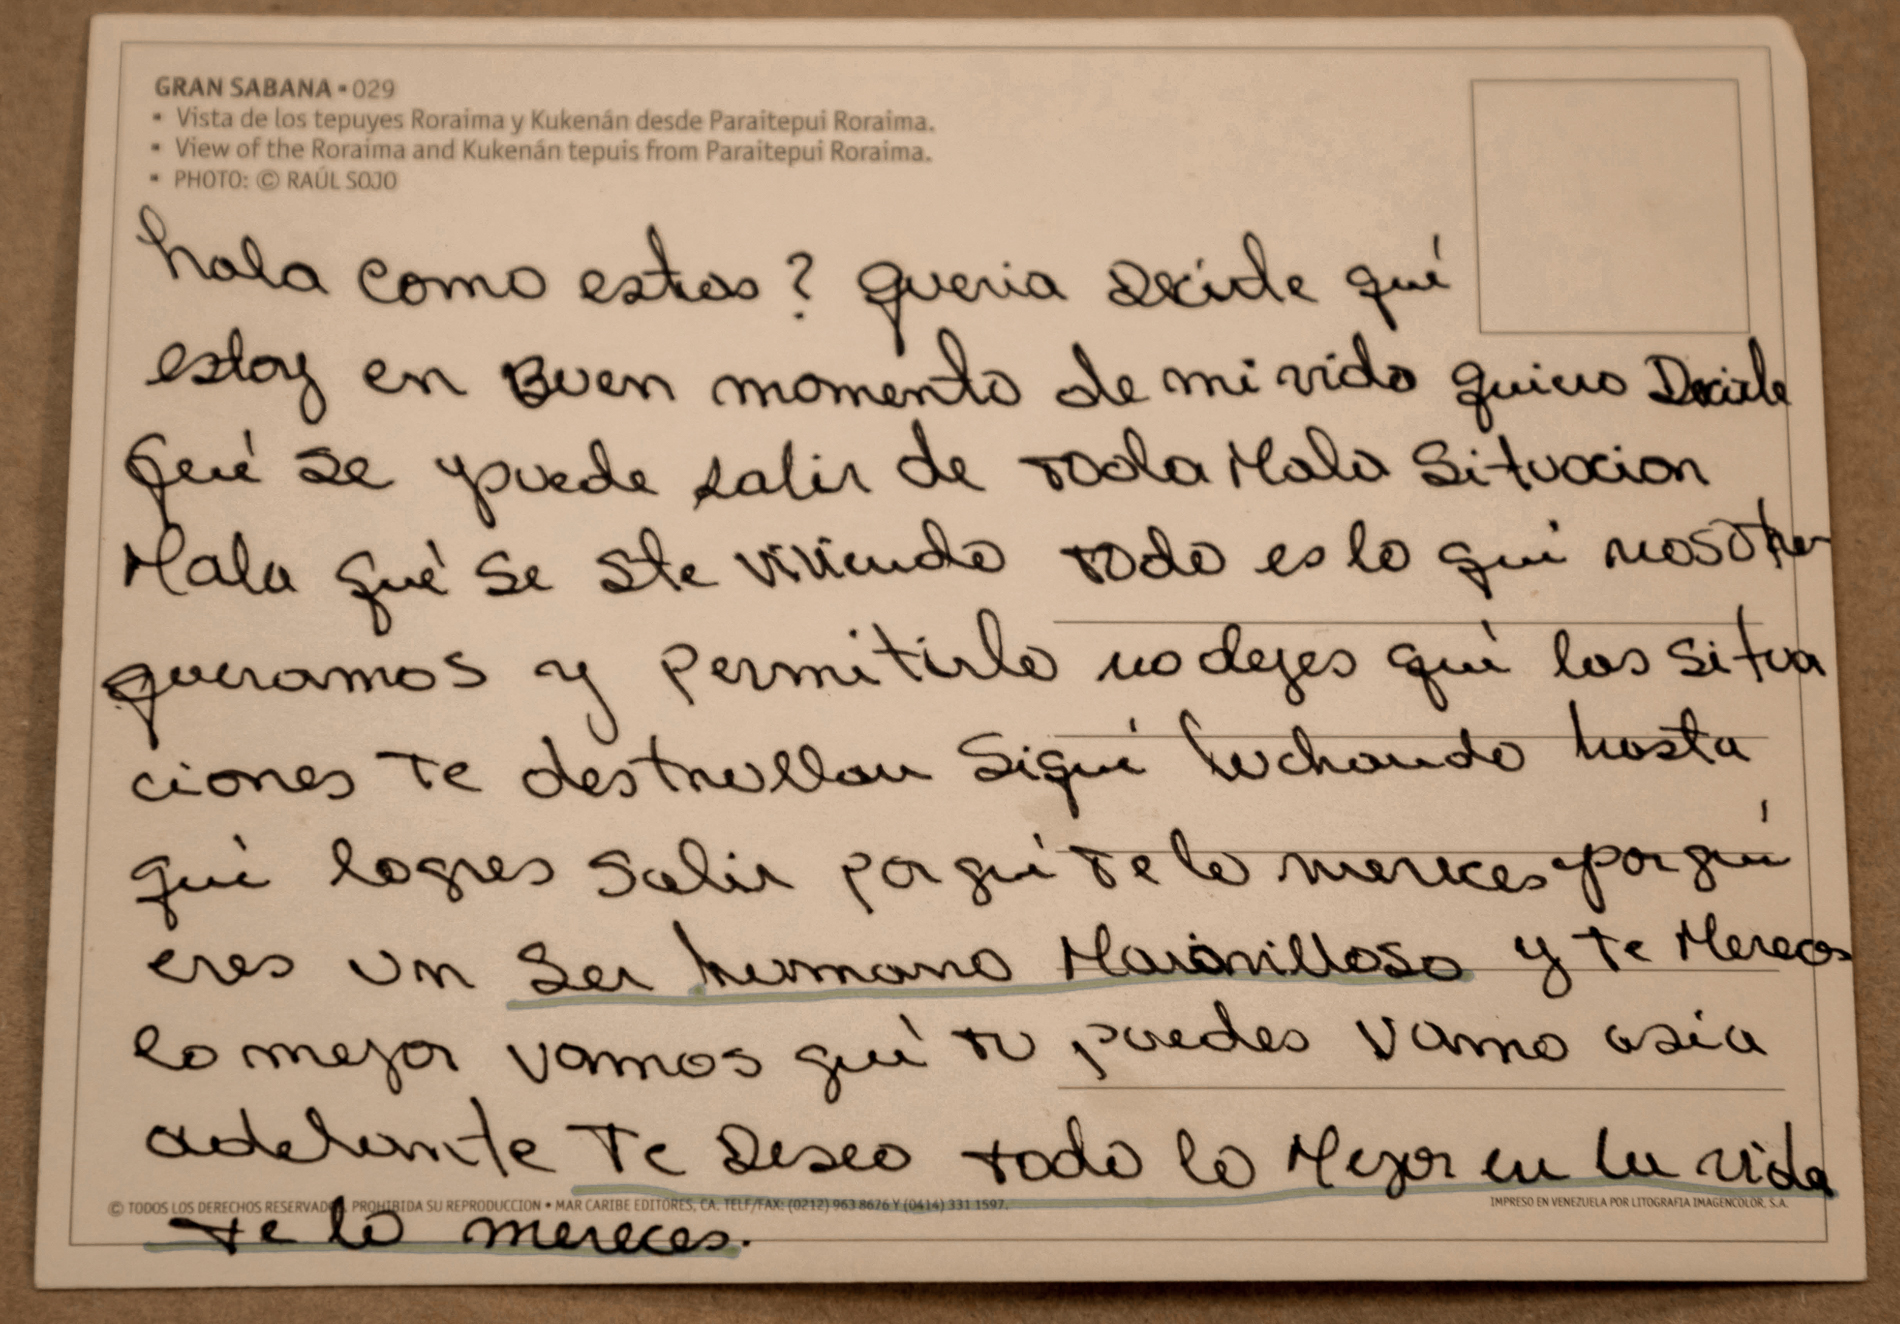 GRAN SABANA • 029
• Vista de los tepuyes Roraima y Kukenán desde Paraitepui Roraima.
• View of the Roraima and Kukenán tepuis from Paraitepui Roraima.
• PHOTO: © RAÚL SOJO
hola como estas? queria Decirle qué
estoy en Buen momento de mi vida quiero Decirle
qué se puede salir de toda Mala Situacion
Mala qué se ste viviendo todo es lo qué nosotros
queramos y permitirlo no dejes qué las situa
ciones te destrullan Sigué luchando hasta
qué logres Salir porqué te lo mereces porqué
eres un Ser humano Maravilloso y te Mereces
lo mejor vamos qué tu puedes Vamo asia
adelante Te Deseo todo lo Mejor en tu vida
© TODOS LOS DERECHOS RESERVADOS. PROHIBIDA SU REPRODUCCION • MAR CARIBE EDITORES, CA. TELF/FAX: (0212) 963 8676 Y (0414) 331 1597. IMPRESO EN VENEZUELA POR LITOGRAFIA IMAGENCOLOR, S.A.
te lo mereces.